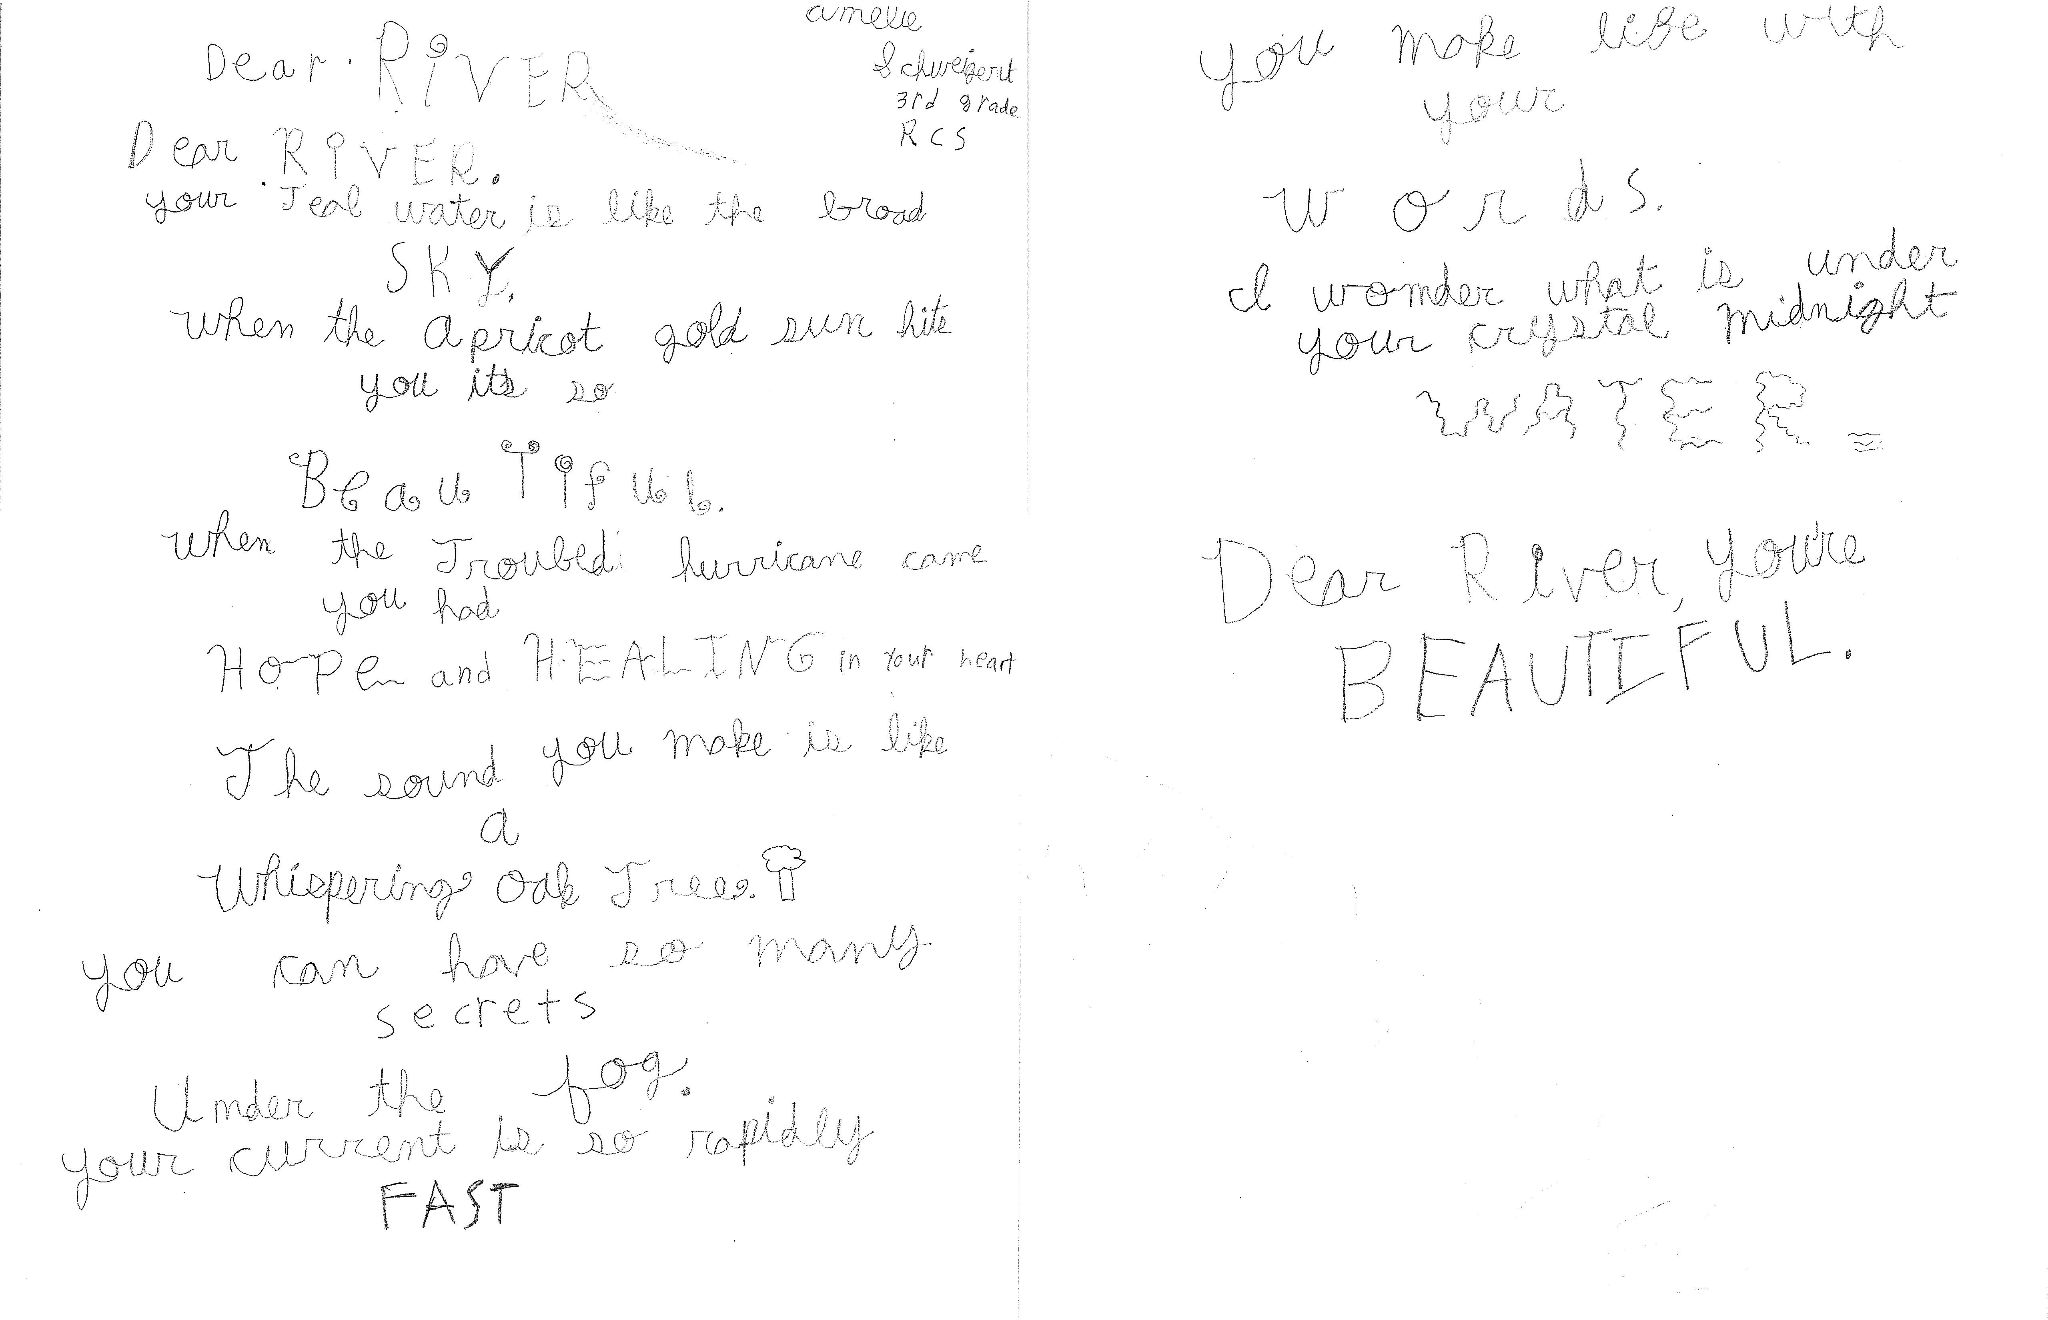 Dear RiVER
amelie
Schweigert
3rd grade
RCS
Dear RiVER.
your Teal water is like the broad
SKY.
when the apricot gold sun hits
you it's so
BeauTiful.
when the Troubed hurricane came
you had
HOPe and HEALING in your heart
The sound you make is like
a
Whispering Oak Tree.
you can have so many
secrets
Under the fog.
your current is so rapidly
FAST
you make life with
your
words.
I wonder what is under
your crystal midnight
WATER
Dear River, you're
BEAUTIFUL.